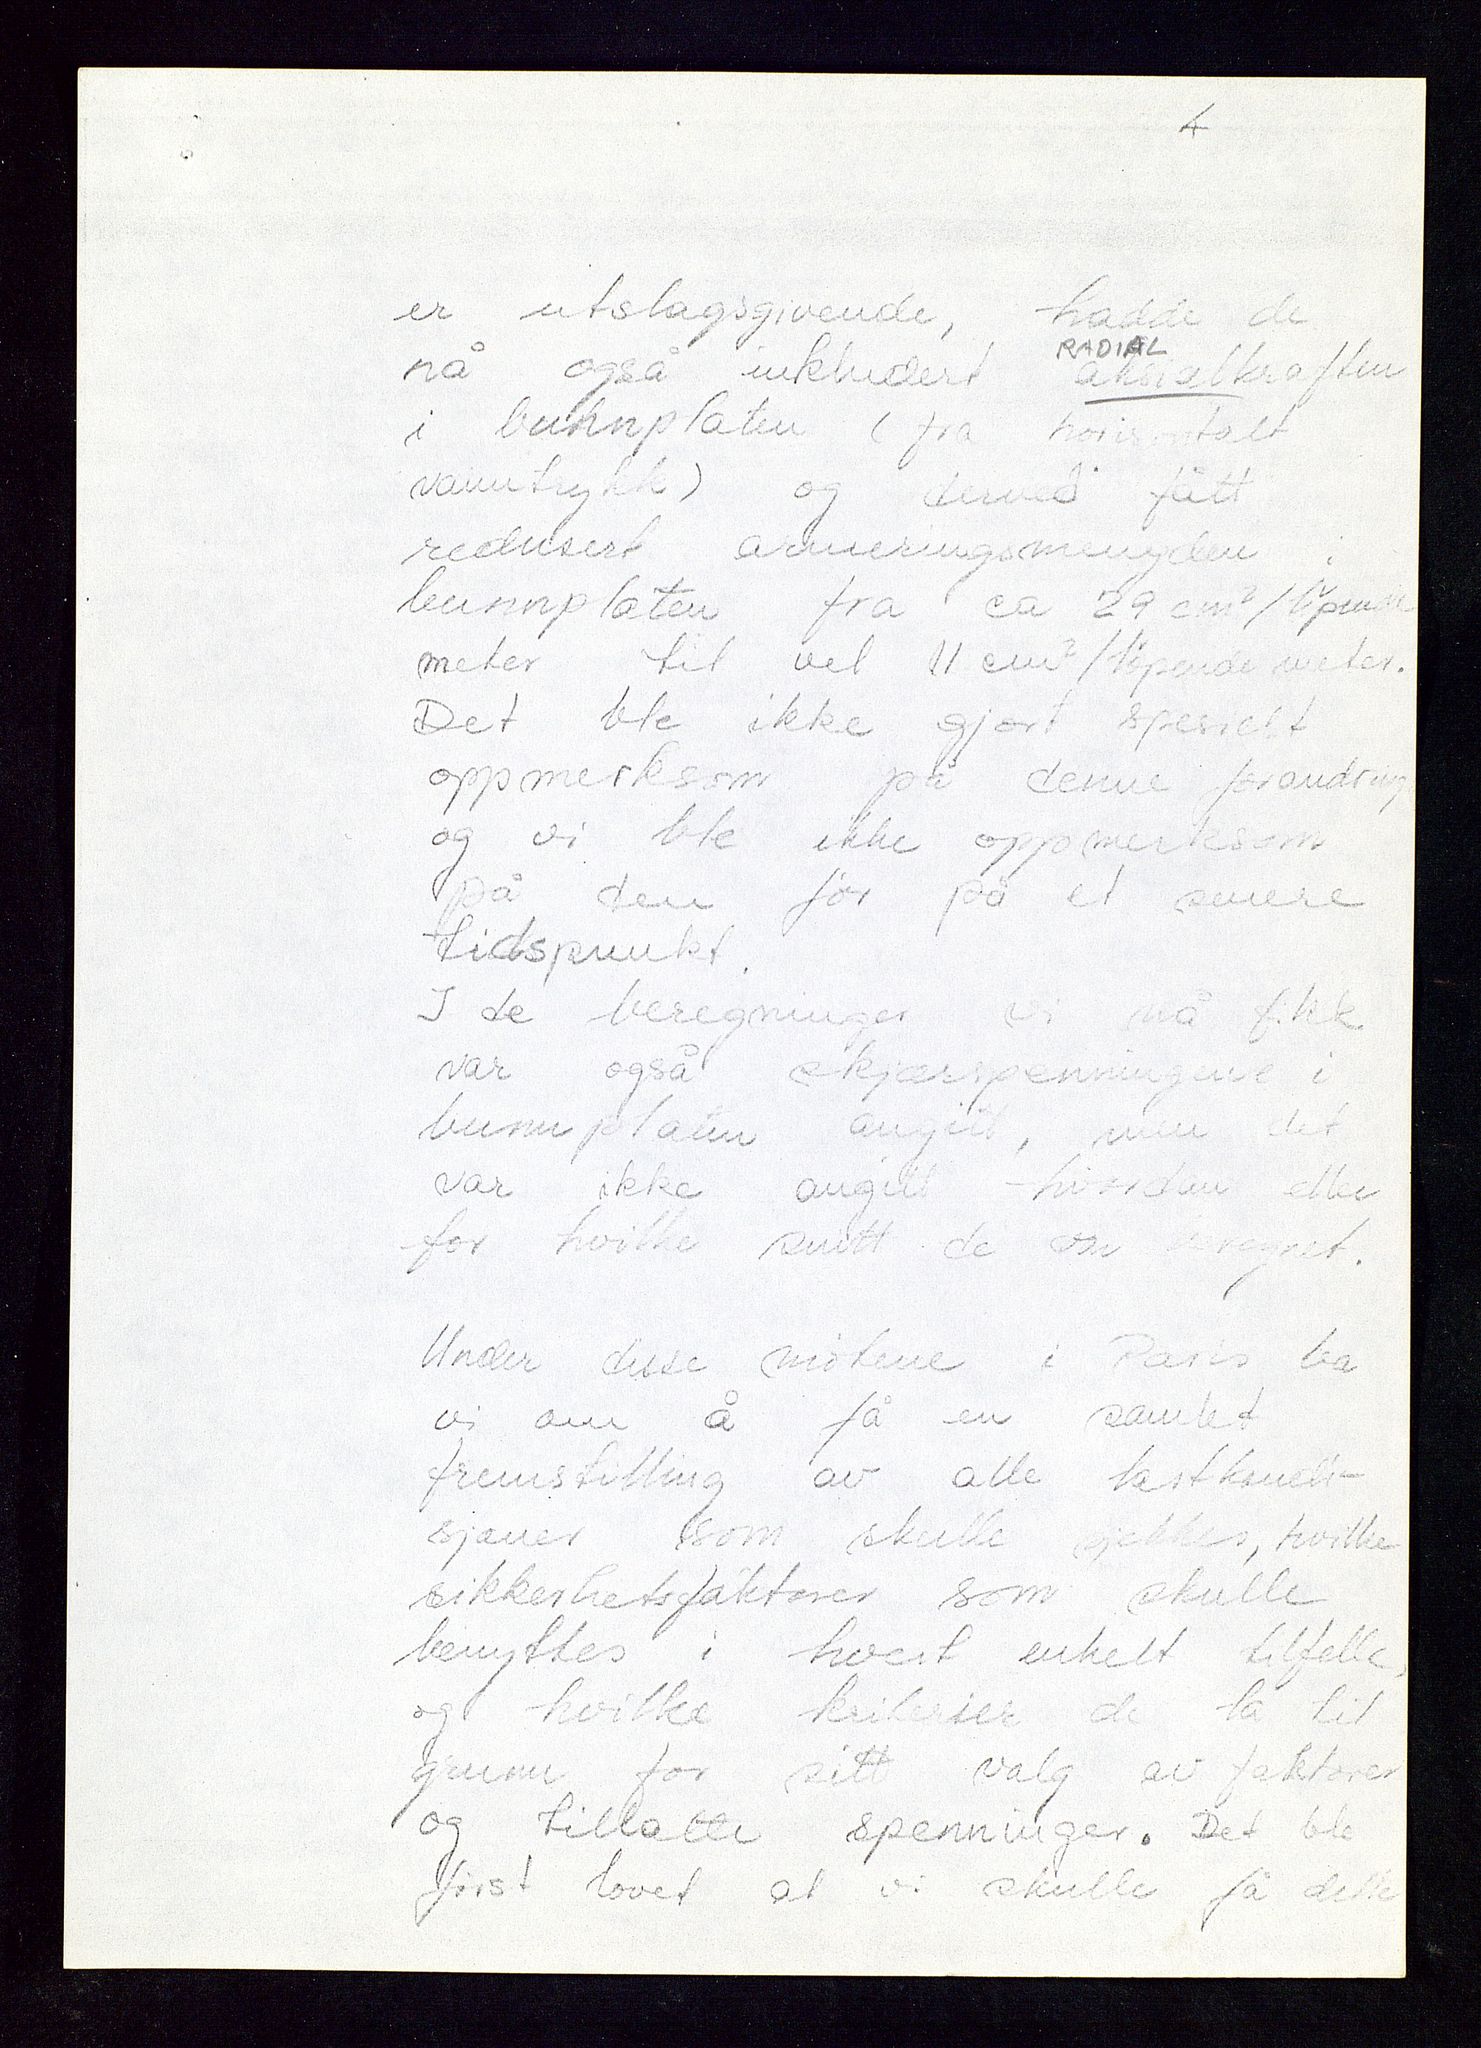 4
er utslagsgivende, hadde de
RADIAL
nå også inkludert aksialkraften
i bunnplaten (fra horisontalt
vanntrykk) og derved fått
redusert armeringsmengden i
bunnplaten fra ca 29 cm²/løpende
meter til vel 11 cm²/løpende meter.
Det ble ikke gjort spesielt
oppmerksom på denne forandring
og vi ble ikke oppmerksom
på den før på et senere
tidspunkt.
I de beregninger vi nå fikk
var også skjærspenningene i
bunnplaten angitt, men det
var ikke angitt hvordan eller
for hvilke snitt de var beregnet.
Under disse møtene i Paris ba
vi om å få en samlet
fremstilling av alle lastkondi-
sjoner som skulle sjekkes, hvilke
sikkerhetsfaktorer som skulle
benyttes i hvert enkelt tilfelle,
og hvilke kriterier de la til
grunn for sitt valg av faktorer
og tillatte spenninger. Det ble
først lovet at vi skulle få dette